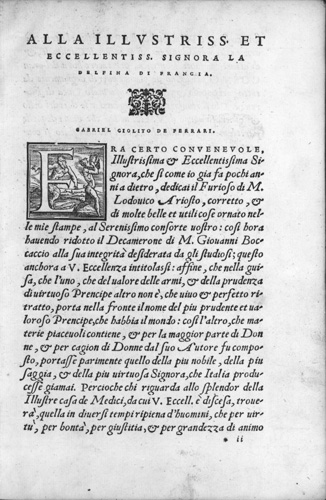 ALLA ILLVSTRISS. ET
ECCELLENTISS. SIGNORA LA
DELFINA DI FRANCIA.
GABRIEL GIOLITO DE FERRARI.
ERA CERTO CONVENEVOLE,
Illustrissima & Eccellentissima Si-
gnora, che si come io gia fa pochi an-
ni a dietro, dedicai il Furioso di M.
Lodouico Ariosto, corretto, &
di molte belle et utili cose ornato nel-
le mie stampe, al Serenissimo consorte uostro: cosi hora
hauendo ridotto il Decamerone di M. Giouanni Boc-
caccio alla sua integrità desiderata da gli studiosi; questo
anchora a V. Eccellenza intitolassi: affine, che nella gui-
sa, che l'uno, che del ualore delle armi, & della prudenza
di uirtuoso Prencipe altro non è, che uiuo & perfetto ri-
tratto, porta nella fronte il nome del piu prudente et ua-
loroso Prencipe, che habbia il mondo: cosi l'altro, che ma-
terie piaceuoli contiene, & per la maggior parte di Don
ne, & per cagion di Donne dal suo Autore fu compo-
sto, portasse parimente quello della piu nobile, della piu
saggia, & della piu uirtuosa Signora, che Italia produ-
cesse giamai. Percioche chi riguarda allo splendor della
Illustre casa de Medici, da cui V. Eccell. è discesa, troue-
rà, quella in diuersi tempi ripiena d'huomini, che per uir-
tù, per bontà, per giustitia, & per grandezza di animo
* ii